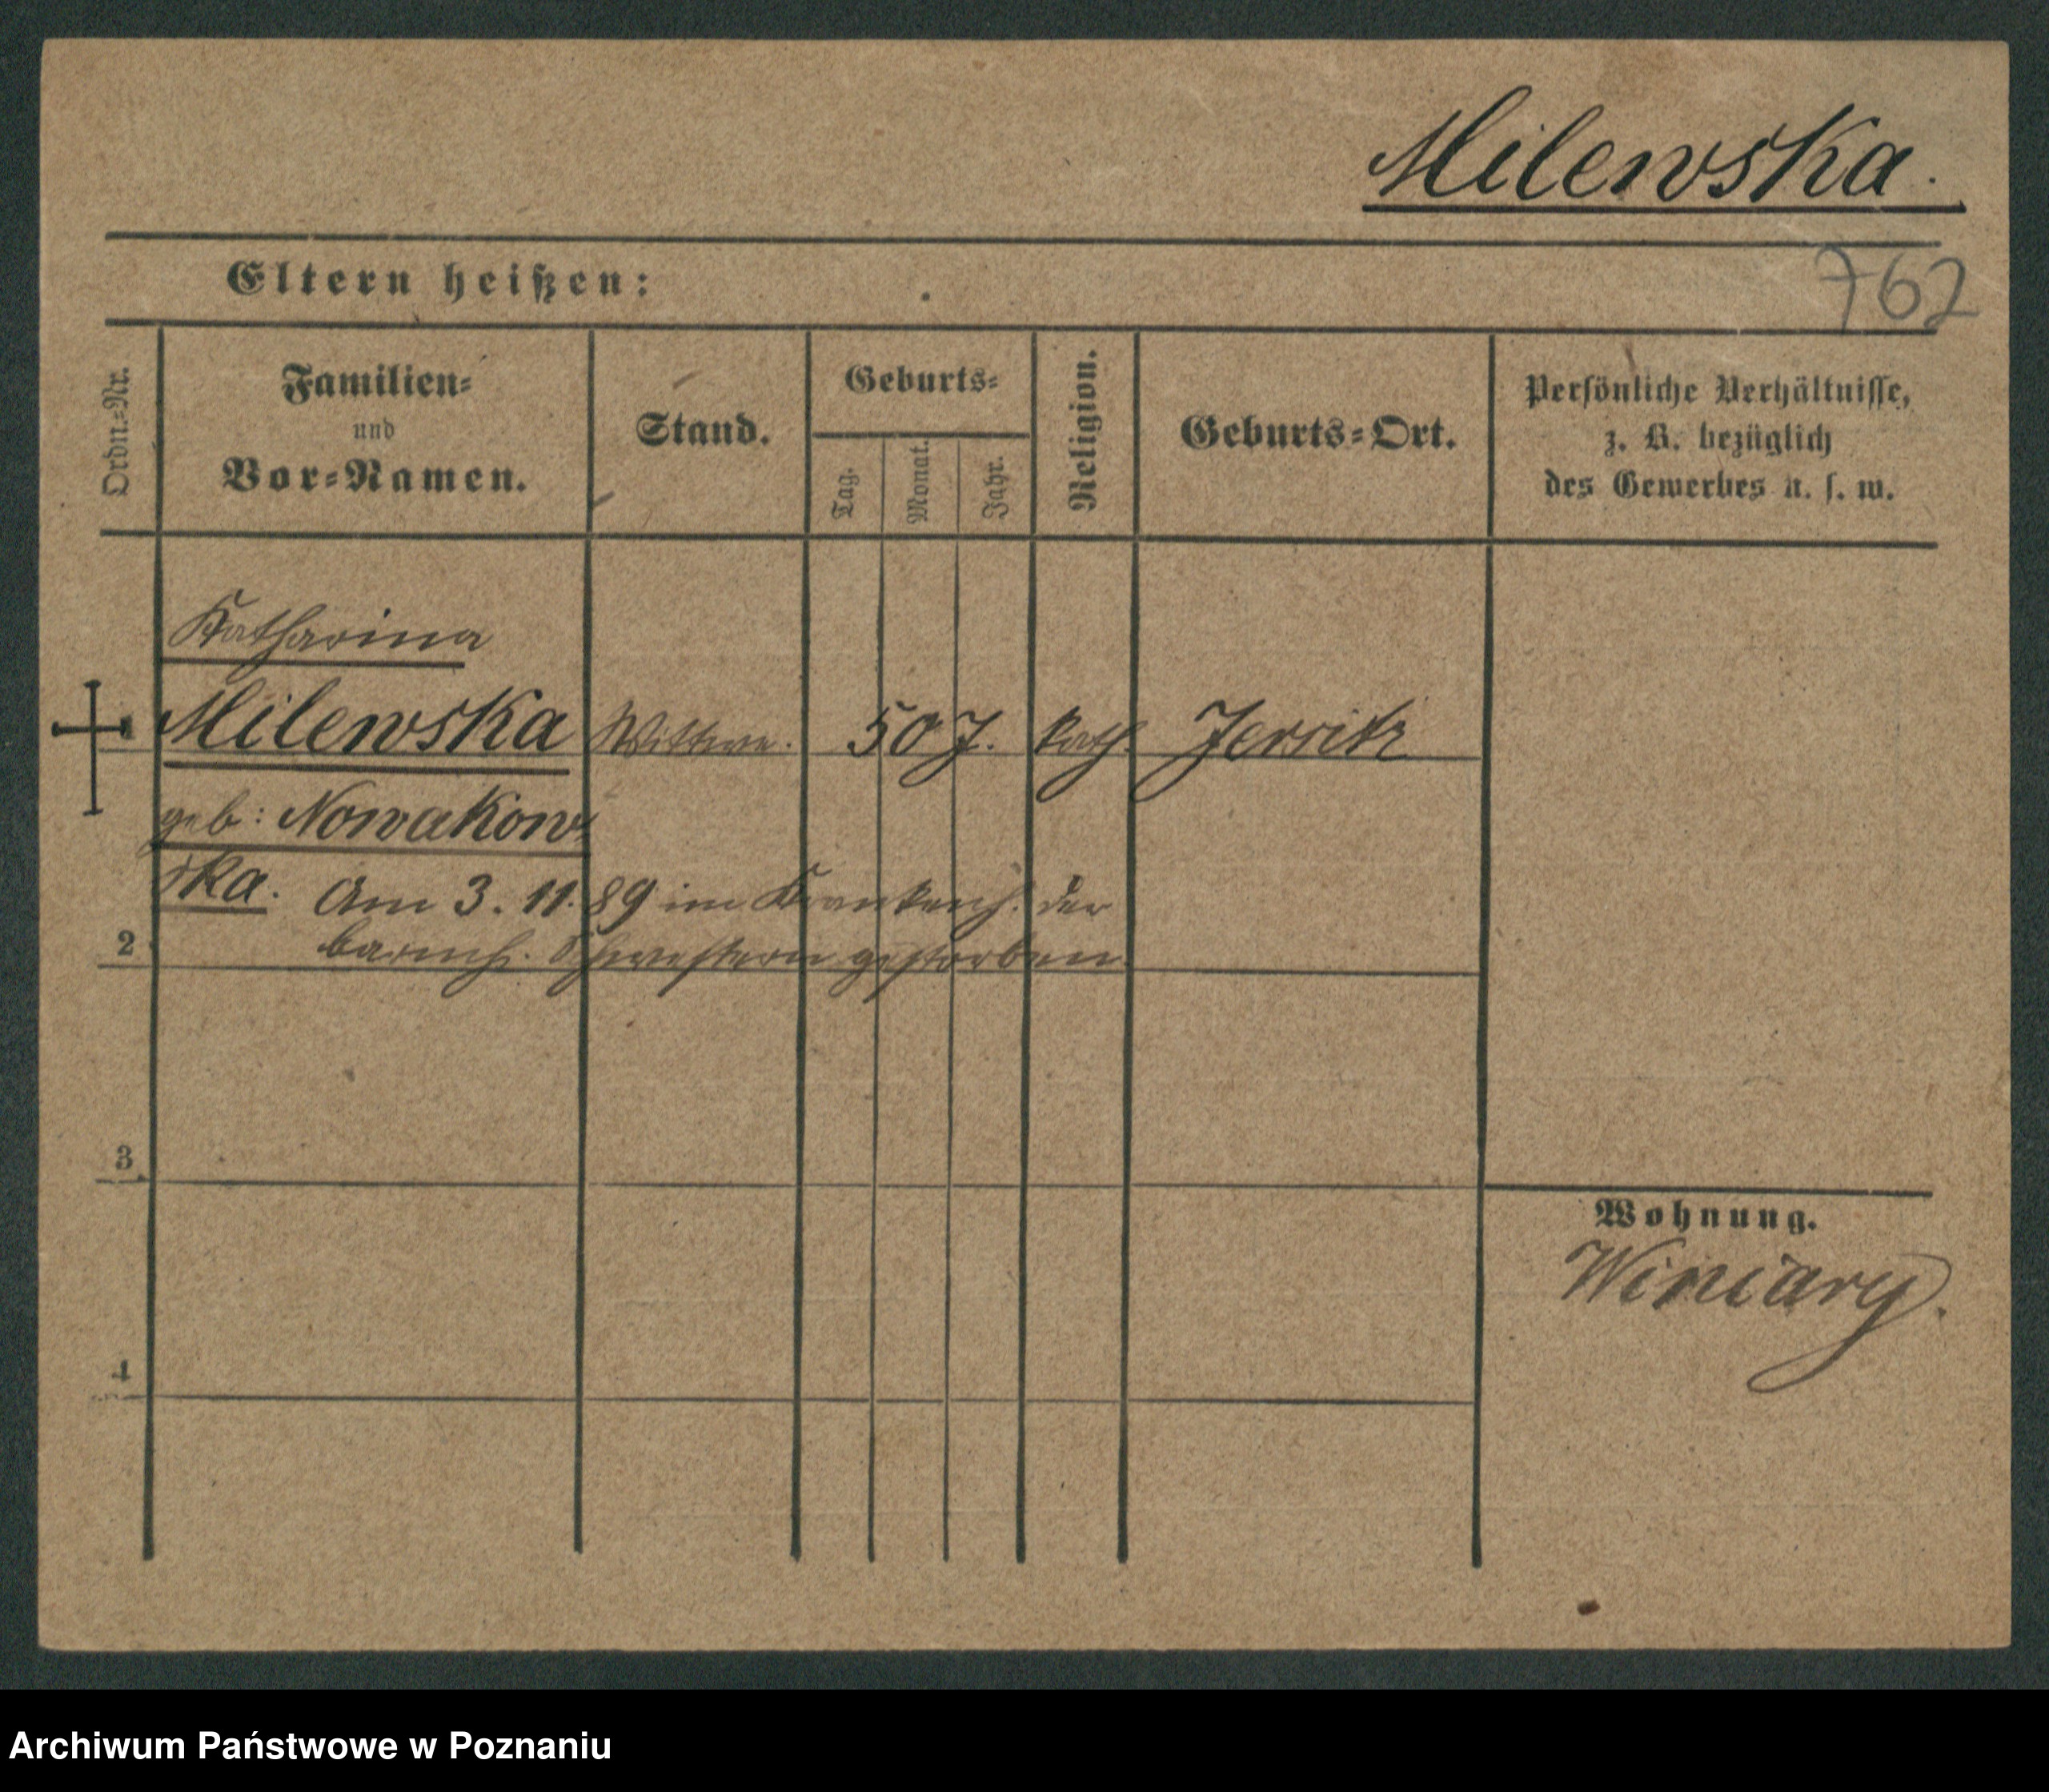 Milewska.
762
Eltern heißen:
Ordn.=Nr.
Familien=
und
Vor=Namen.
Stand.
Geburts=
Tag.
Monat.
Jahr.
Religion.
Geburts=Ort.
Persönliche Verhältnisse,
z. B. bezüglich
des Gewerbes u. s. w.
Katharina
Milewska Wittwe. 50 J. kath. Jersitz
geb: Nowakow-
ska.
Am 3. 11. 89 im Krankenh. der
barmh. Schwestern gestorben.
2
3
Wohnung.
Winiary.
4
Archiwum Państwowe w Poznaniu